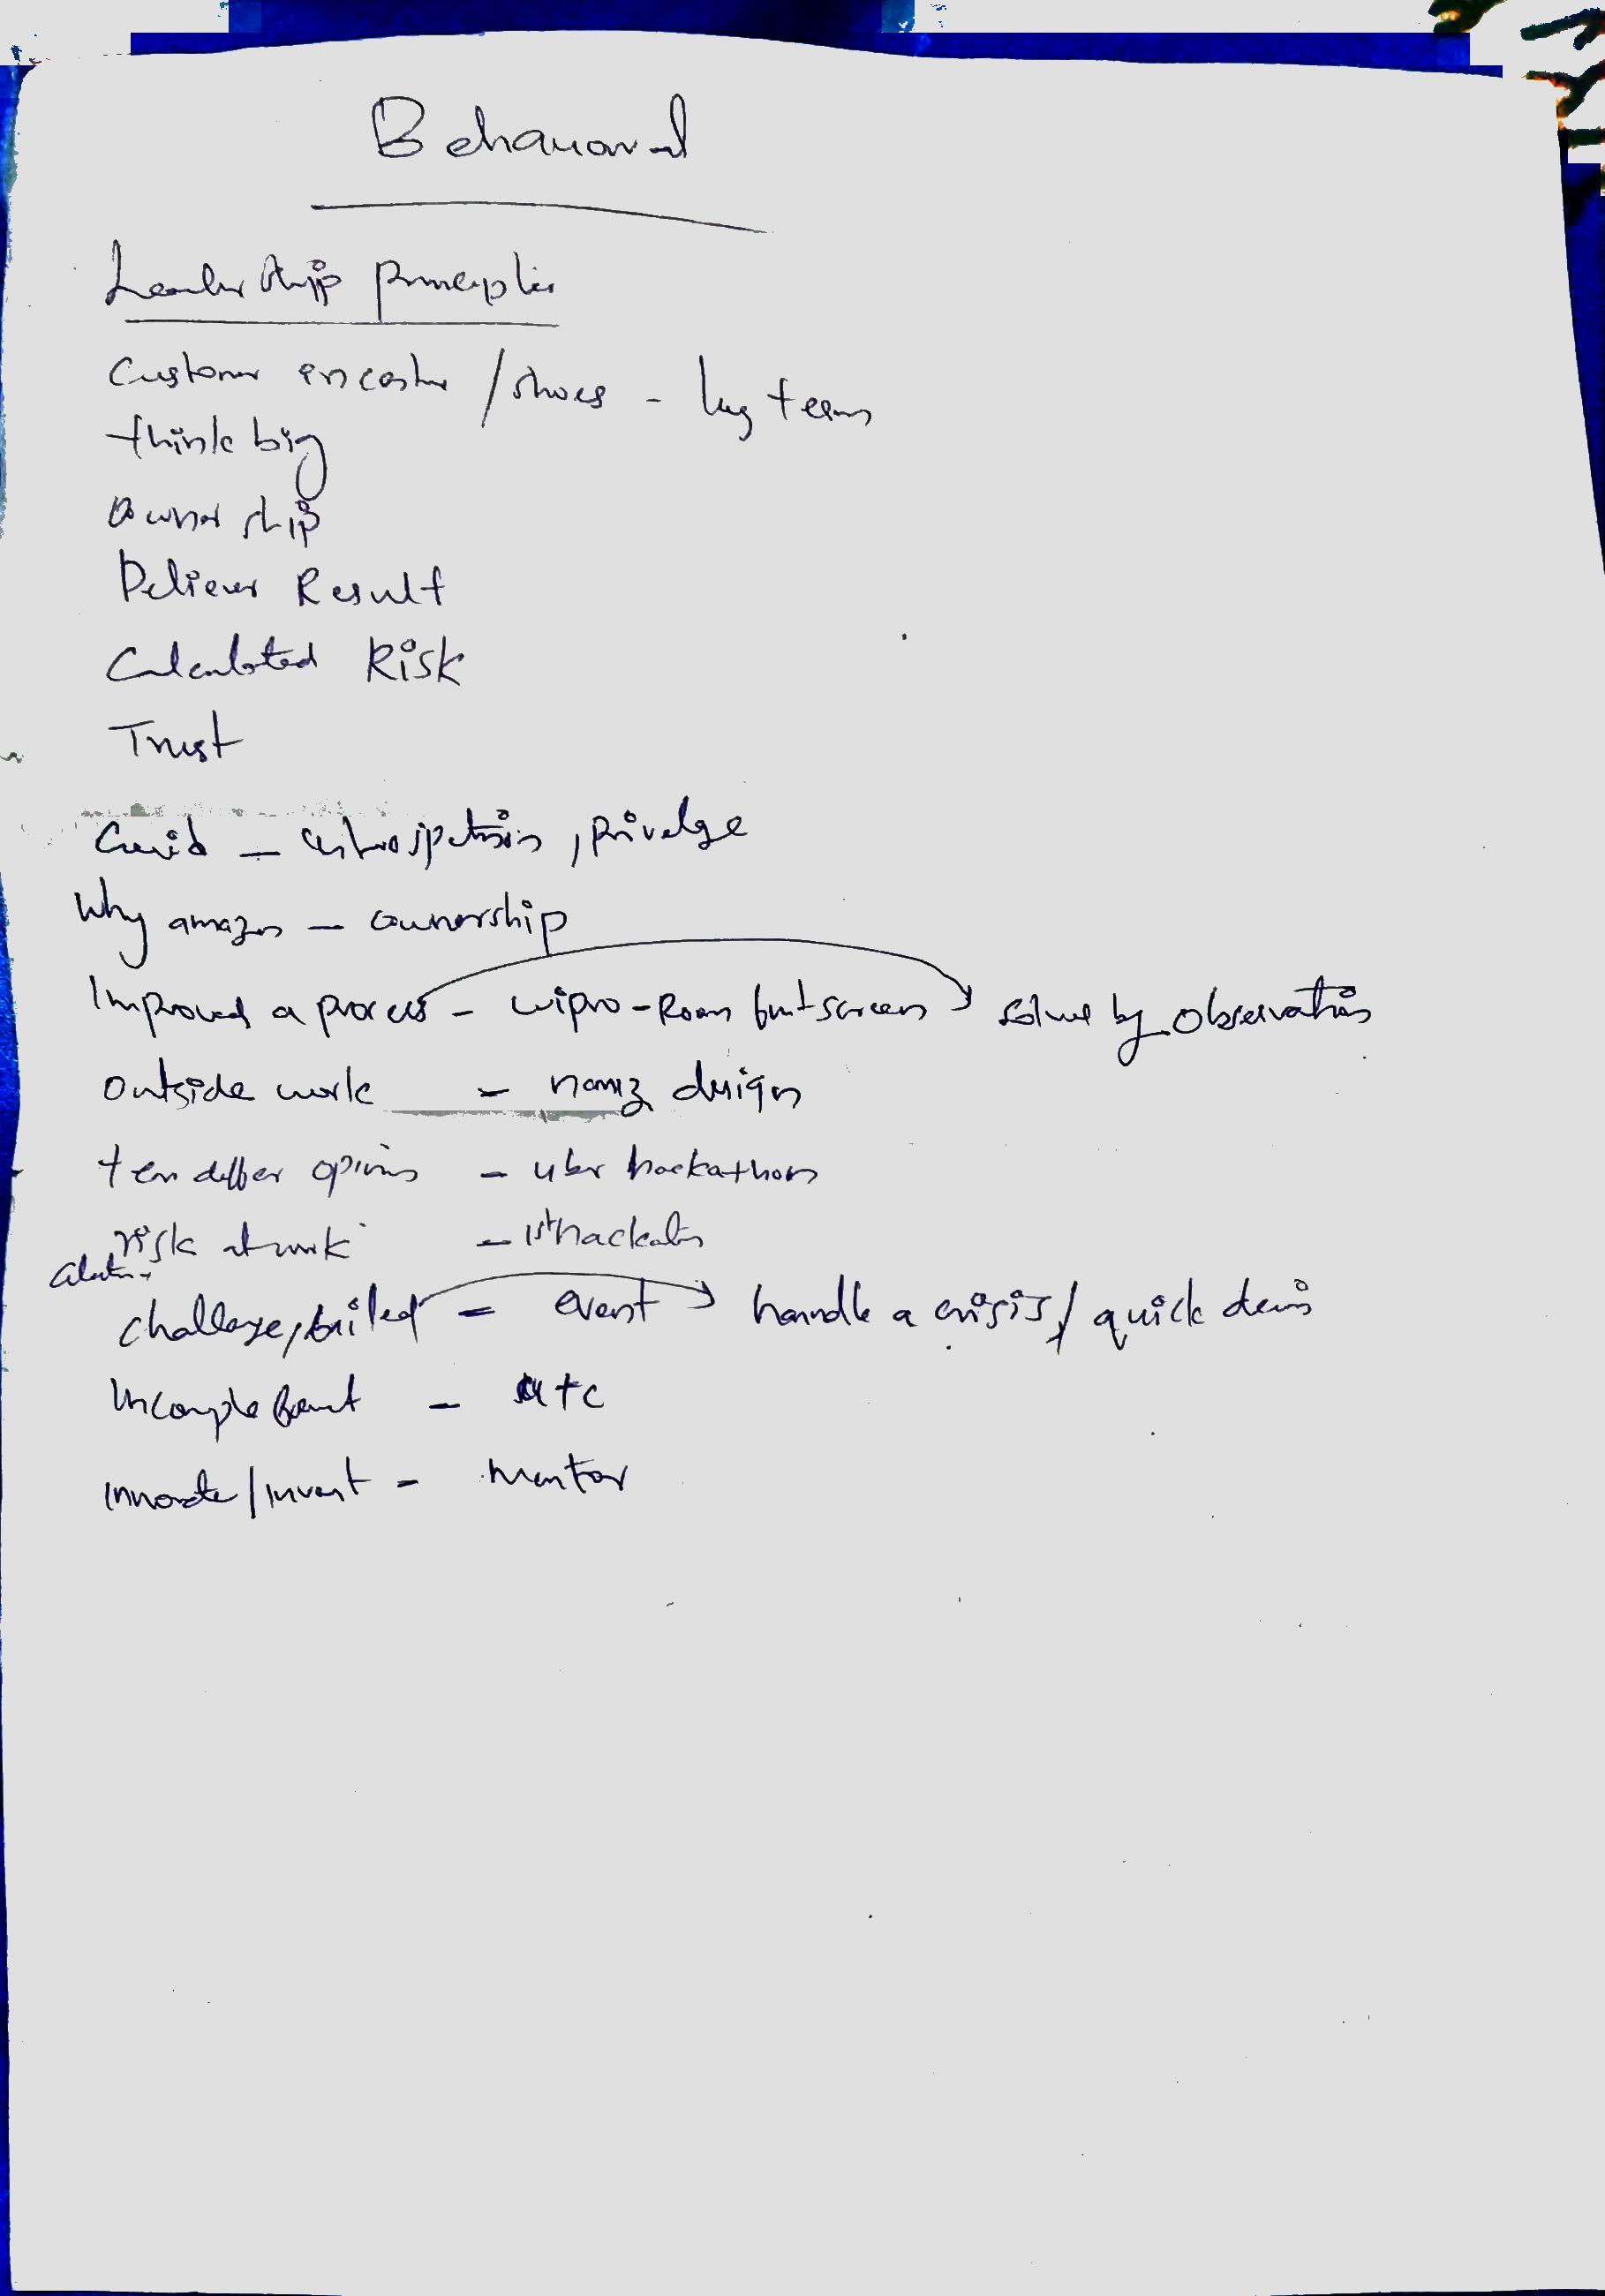 Behavioral
Leadership principles
Customer / shoes - long term
think big
Ownership
Deliever Result
Calculated Risk
Trust
Covid - introspection, privelge
Why amazon - ownership
Improved a process - wipro - Room screen solve by observation
Outside work - design
ten differ opinions - uber hackathon
risk at work - 1st hackathon
challenge, failed = event handle a crisis / quick
- atc
innovate / invent - mentor